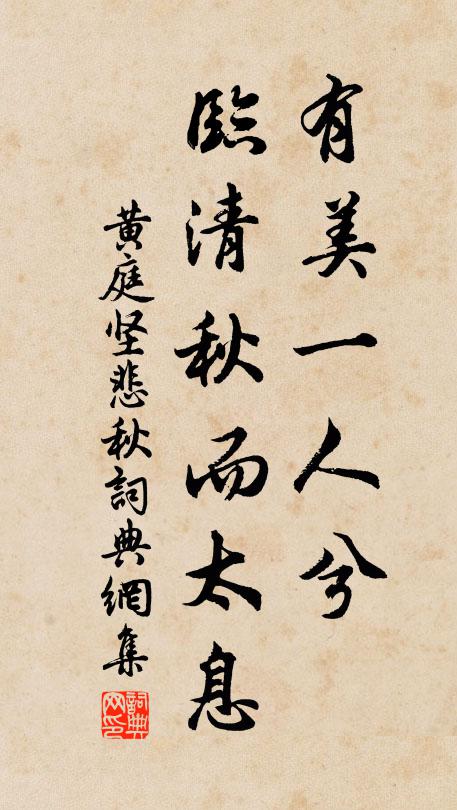 有美一人兮
臨清秋而太息
黄庭坚悲秋詞典網集
詞典网印